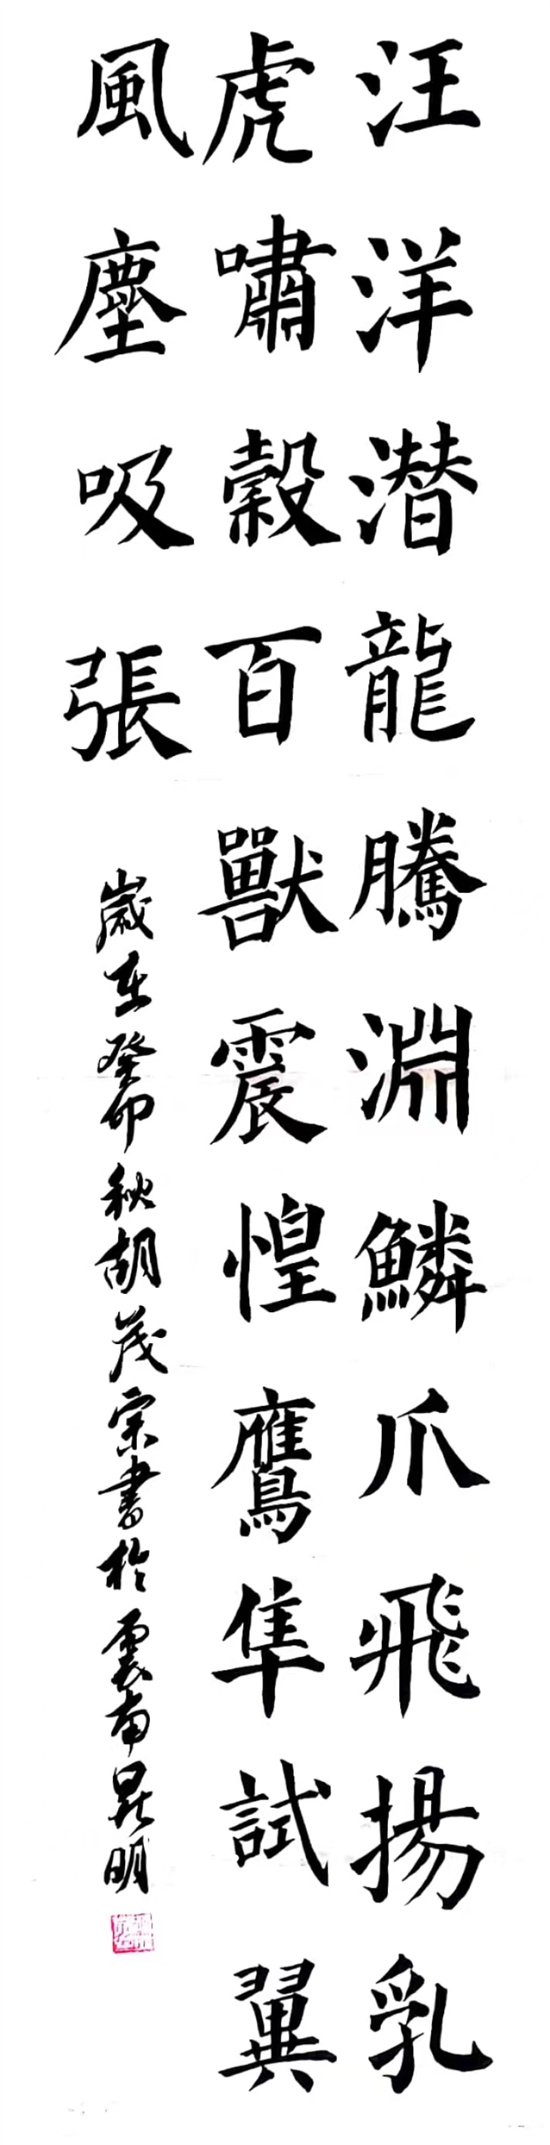 汪洋潜龍騰淵鱗爪飛揚乳
虎嘯穀百獸震惶鷹隼試翼
風塵吸張
歲在癸卯秋胡茂宗書於雲南昆明